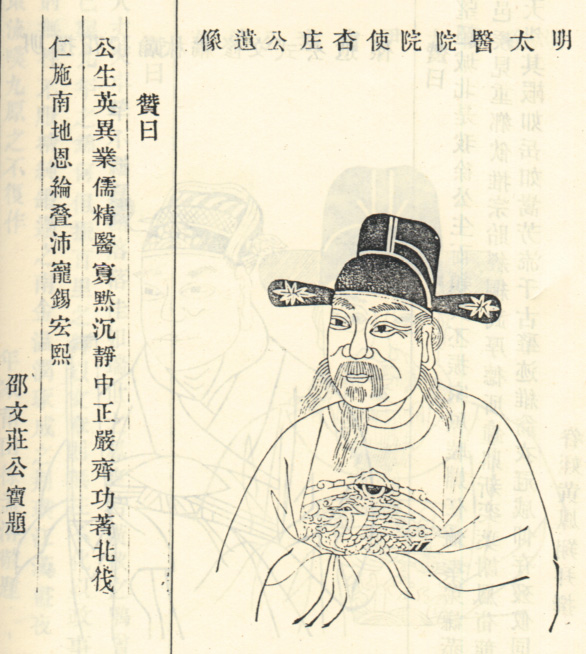 明太醫院院使杏庄公遺像
贊曰
公生英異業儒精醫寡黙沉靜中正嚴齊功著北伐
仁施南地恩綸叠沛寵錫宏熙
邵文莊公寶題